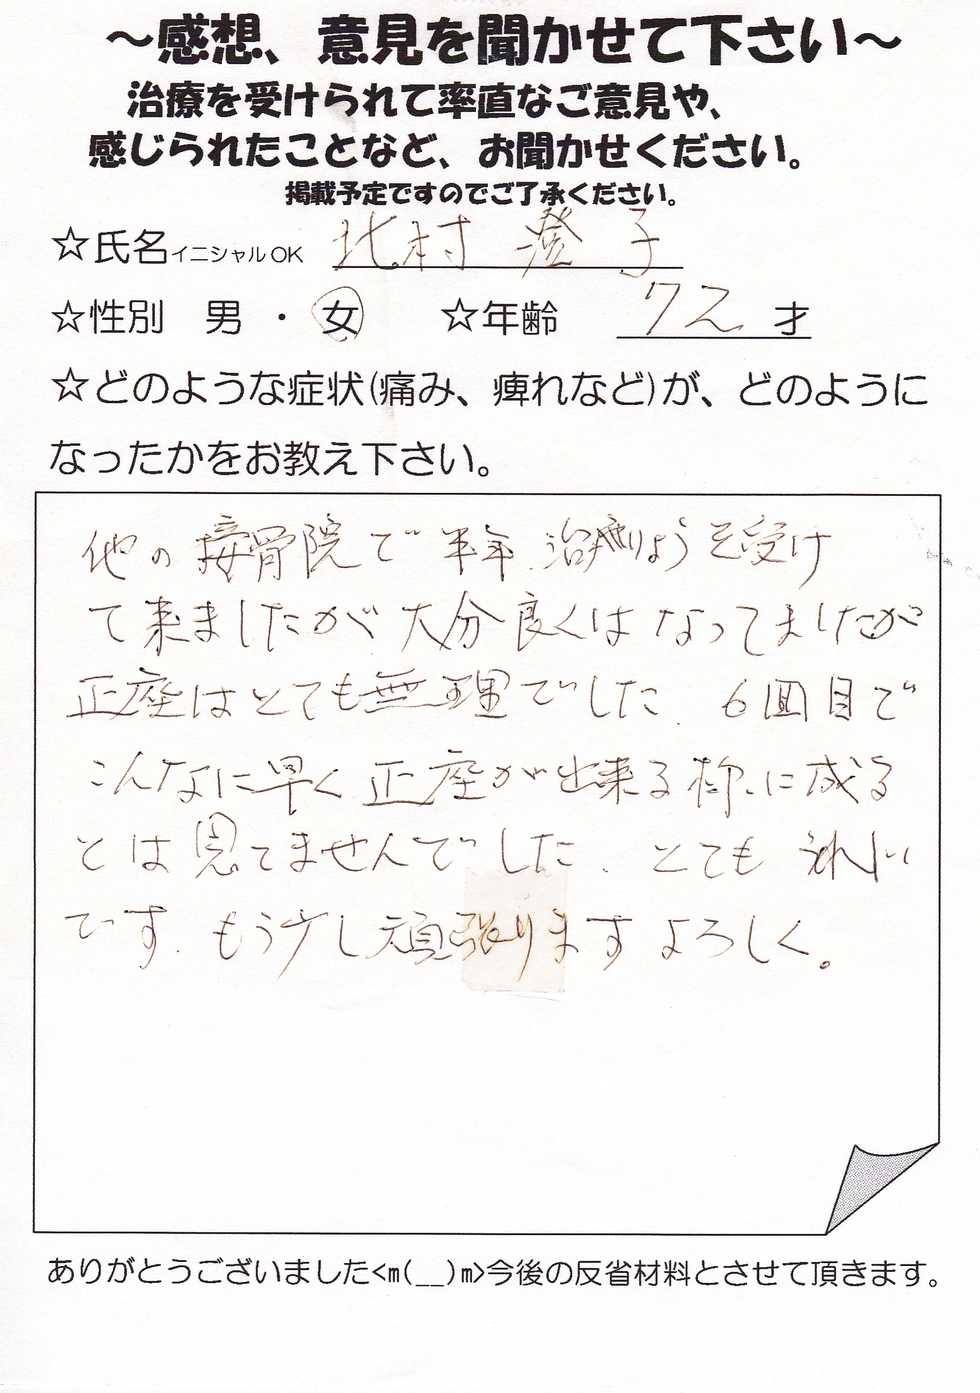 ～感想、意見を聞かせて下さい～
治療を受けられて率直なご意見や、
感じられたことなど、お聞かせください。
掲載予定ですのでご了承ください。
☆氏名イニシャルOK 北村 澄子
☆性別 男 ・ 女 ☆年齢 72 才
☆どのような症状(痛み、痺れなど)が、どのように
なったかをお教え下さい。
他の接骨院で半年.治療りようを受け
て来ましたが大分良くはなってましたが
正座はとても無理でした. 6回目で
こんなに早く正座が出来る様に成る
とは思てませんでした. とてもうれしい
です. もう少し頑張ります よろしく。
ありがとうございました<m(__)m>今後の反省材料とさせて頂きます。